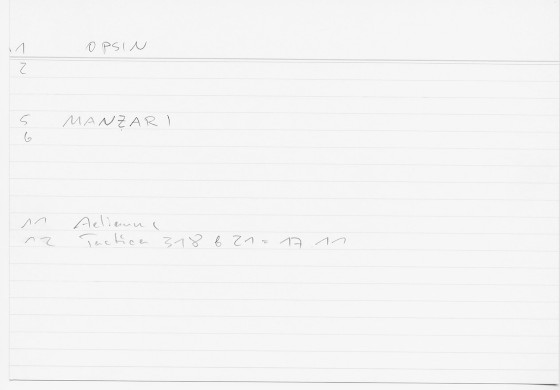 1 OPSIN
2
5 MANZARI
6
11
12 Tactica 318 6 21 = 17 11